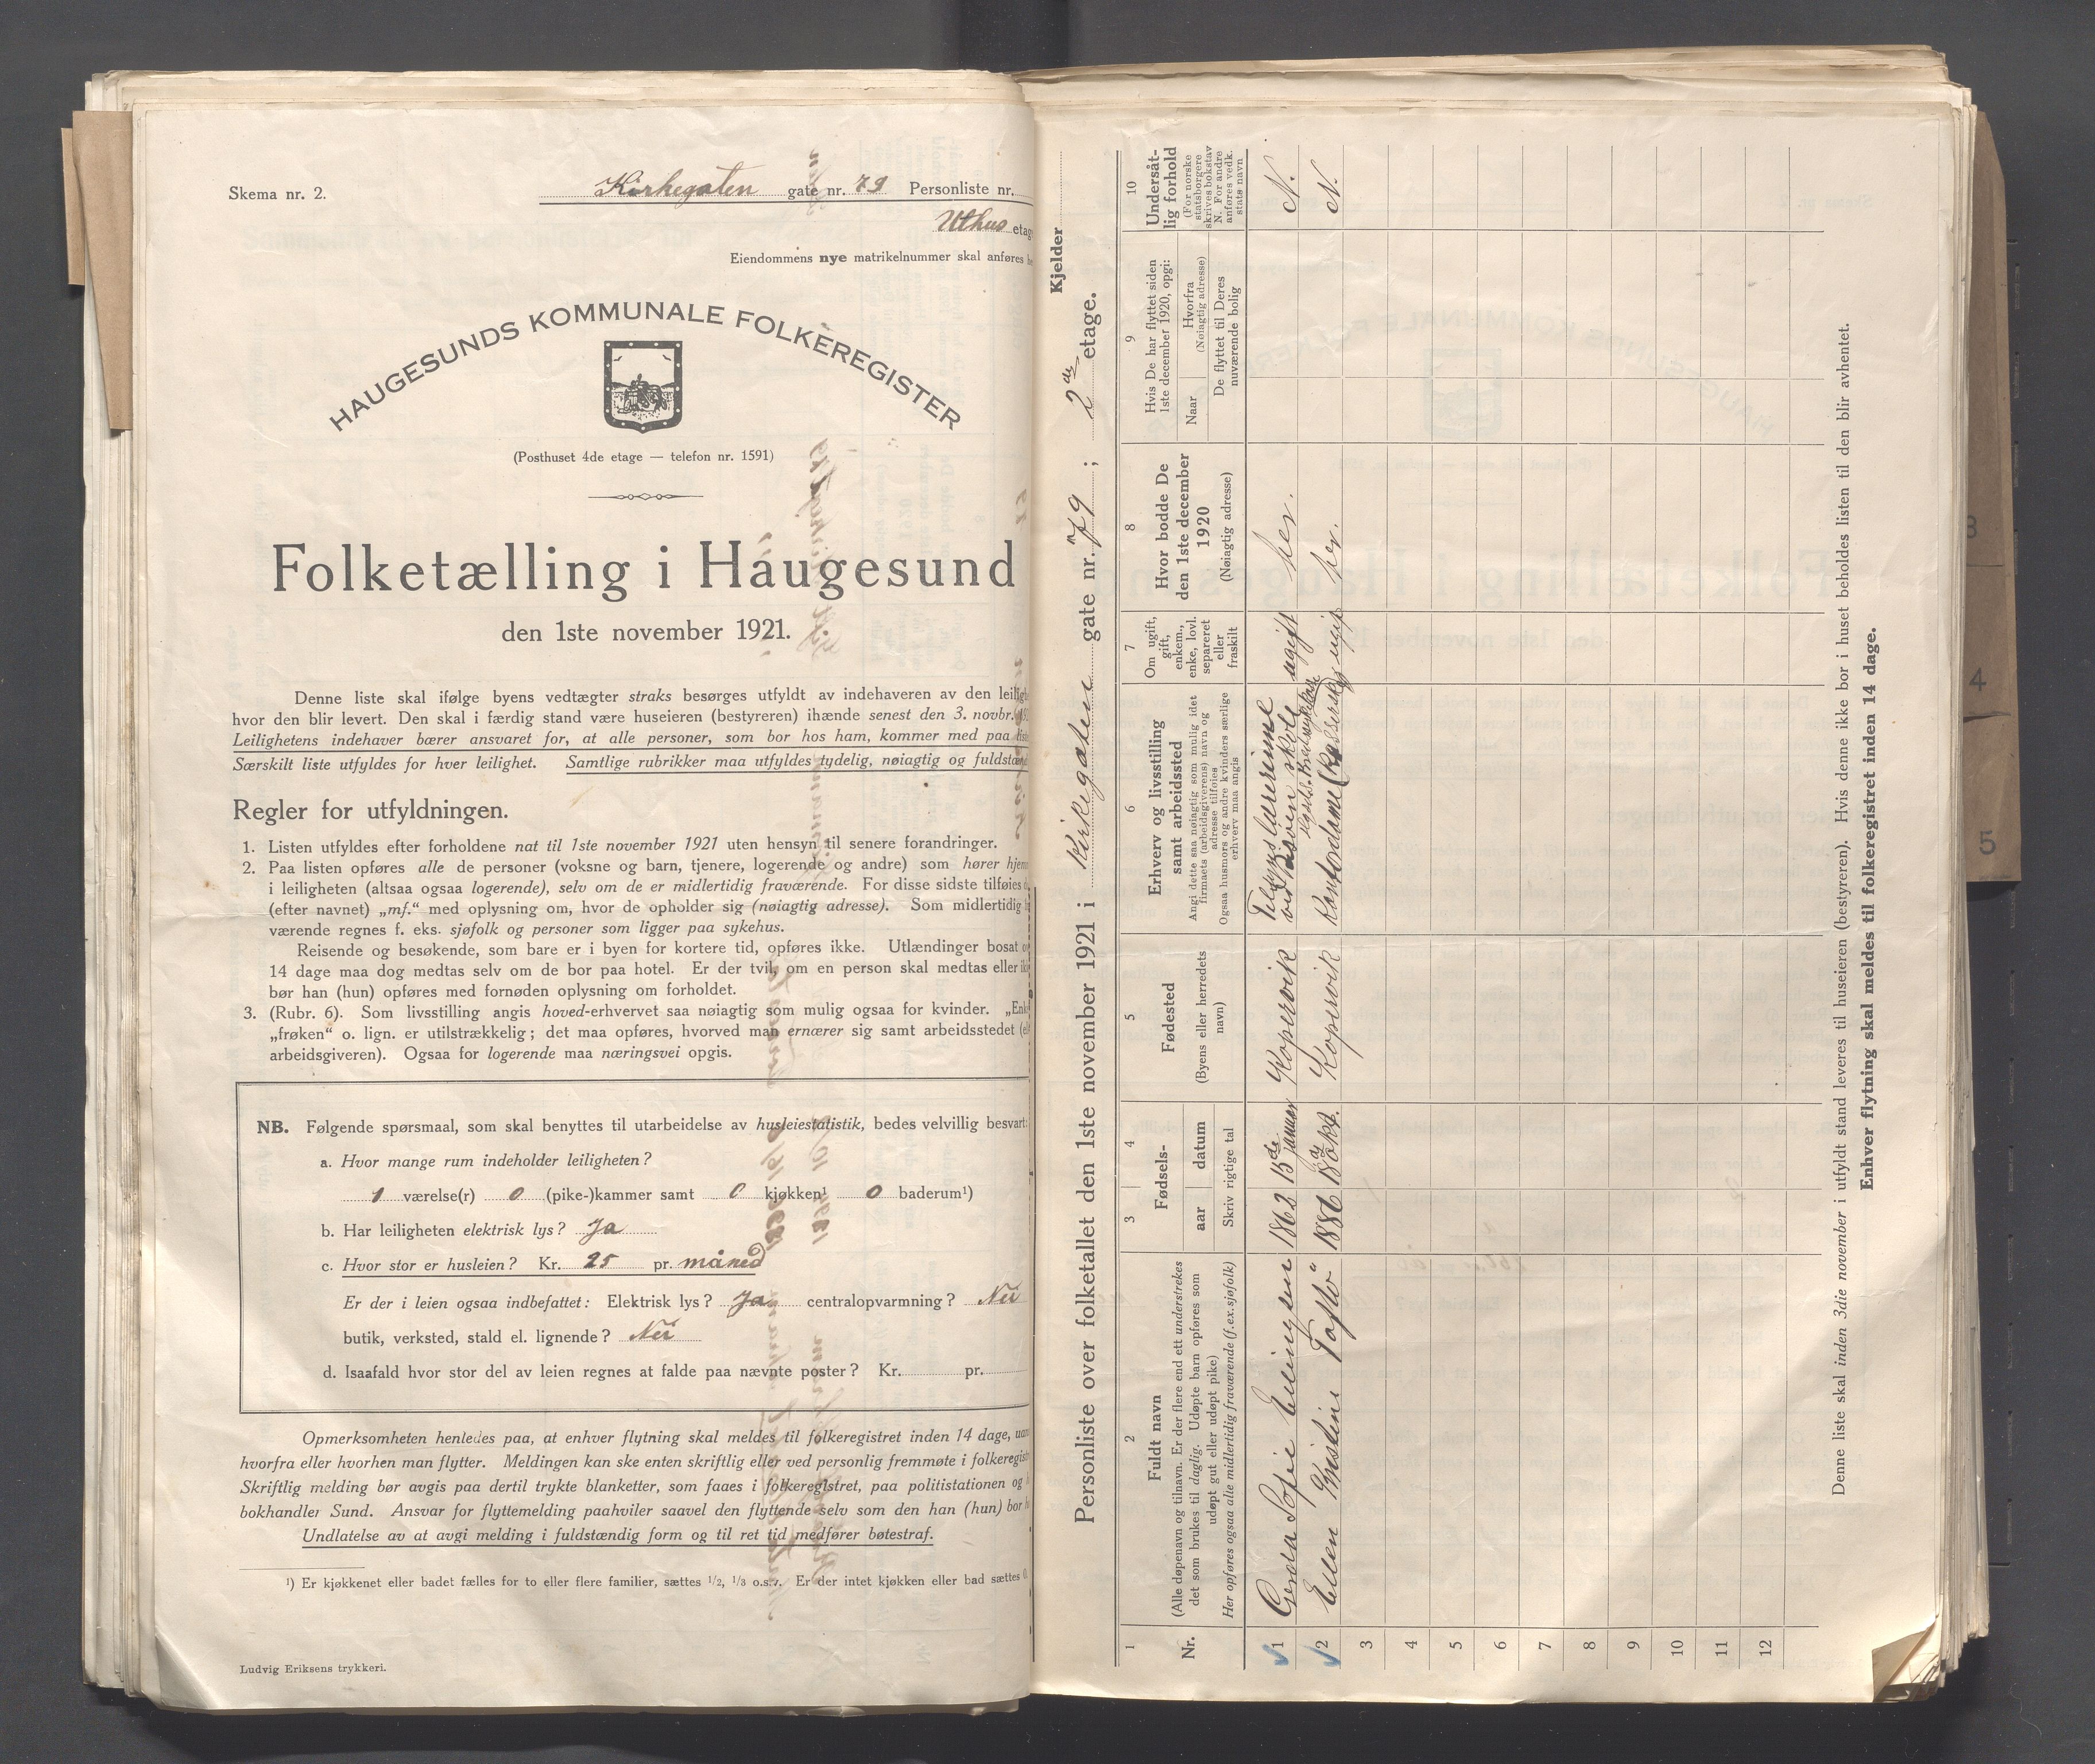 Skema nr. 2.
Kirkegaten gate nr. 79 Personliste nr.
Uthus etag
Eiendommens nye matrikelnummer skal anføres he
HAUGESUNDS KOMMUNALE FOLKEREGISTER
(Posthuset 4de etage — telefon nr. 1591)
Folketælling i Haugesund
den 1ste november 1921.
Denne liste skal ifølge byens vedtægter straks besørges utfyldt av indehaveren av den leiligh
hvor den blir levert. Den skal i færdig stand være huseieren (bestyreren) ihænde senest den 3. novbr.
Leilighetens indehaver bærer ansvaret for, at alle personer, som bor hos ham, kommer med paa liste
Særskilt liste utfyldes for hver leilighet. Samtlige rubrikker maa utfyldes tydelig, nøiagtig og fuldstæn
Regler for utfyldningen.
1. Listen utfyldes efter forholdene nat til 1ste november 1921 uten hensyn til senere forandringer.
2. Paa listen opføres alle de personer (voksne og barn, tjenere, logerende og andre) som hører hjem
i leiligheten (altsaa ogsaa logerende), selv om de er midlertidig fraværende. For disse sidste tilføies
(efter navnet) „mf.“ med oplysning om, hvor de opholder sig (nøiagtig adresse). Som midlertidig
værende regnes f. eks. sjøfolk og personer som ligger paa sykehus.
Reisende og besøkende, som bare er i byen for kortere tid, opføres ikke. Utlændinger bosat
14 dage maa dog medtas selv om de bor paa hotel. Er der tvil, om en person skal medtas eller ik
bør han (hun) opføres med fornøden oplysning om forholdet.
3. (Rubr. 6). Som livsstilling angis hoved-erhvervet saa nøiagtig som mulig ogsaa for kvinder. „Enk
„frøken“ o. lign. er utilstrækkelig; det maa opføres, hvorved man ernærer sig samt arbeidsstedet (el
arbeidsgiveren). Ogsaa for logerende maa næringsvei opgis.
NB. Følgende spørsmaal, som skal benyttes til utarbeidelse av husleiestatistik, bedes velvillig besvart:
a. Hvor mange rum indeholder leiligheten?
1 værelse(r) 0 (pike-)kammer samt 0 kjøkken¹ 0 baderum¹)
b. Har leiligheten elektrisk lys? Ja
c. Hvor stor er husleien? Kr. 25 pr. måned
Er der i leien ogsaa indbefattet: Elektrisk lys? Ja centralopvarmning? Nei
butik, verksted, stald el. lignende? Nei
d. Isaafald hvor stor del av leien regnes at falde paa nævnte poster? Kr. pr.
Opmerksomheten henledes paa, at enhver flytning skal meldes til folkeregistret inden 14 dage, uan
hvorfra eller hvorhen man flytter. Meldingen kan ske enten skriftlig eller ved personlig fremmøte i folkeregist
Skriftlig melding bør avgis paa dertil trykte blanketter, som faaes i folkeregistret, paa politistationen og
bokhandler Sund. Ansvar for flyttemelding paahviler saavel den flyttende selv som den han (hun) bor h
Undlatelse av at avgi melding i fuldstændig form og til ret tid medfører bøtestraf.
¹) Er kjøkkenet eller badet fælles for to eller flere familier, sættes 1/2, 1/3 o.s.v. Er der intet kjøkken eller bad sættes 0.
Ludvig Eriksens trykkeri.
Kjelder
Personliste over folketallet den 1ste november 1921 i Kirkegaten gate nr. 79; 2de etage.
1 2 3 4 5 6 7 8 9 10
Nr.
Fuldt navn
(Alle døpenavn og tilnavn. Er der flere end ett understrekes
det som brukes til daglig. Udøpte barn opføres som
udøpt gut eller udøpt pike)
Her opføres ogsaa alle midlertidig fraværende (f.ex. sjøfolk)
Fødsels-
aar datum
Skriv rigtige tal
Fødested
(Byens eller herredets
navn)
Erhverv og livsstilling
samt arbeidssted
Angi dette saa nøiagtig som mulig idet
firmaets (arbeidsgiverens) navn og
adresse tilføies
Ogsaa husmors og andre kvinders særlige
erhverv maa angis
Om ugift,
gift,
enkem.,
enke, lovl.
separeret
eller
fraskilt
Hvor bodde De
den 1ste december
1920
(Nøiagtig adresse)
Hvis De har flyttet siden
1ste december 1920, opgi:
Naar
Hvorfra
(Nøiagtig adresse)
De flyttet til Deres
nuværende bolig
Undersåt-
lig forhold
(For norske
statsborgere
skrives bokstav
N. For andre
anføres vedk.
stats navn
1 Gerda Sofie Ellingsen 1862 15de januar Kopervik ved skole ugift her. N.
2 Ellen Kristine 1886 18 okt. Kopervik Kontordame ugift her. N.
3
4
5
6
7
8
9
10
11
12
Denne liste skal inden 3die november i utfyldt stand leveres til huseieren (bestyreren). Hvis denne ikke bor i huset beholdes listen til den blir avhentet.
Enhver flytning skal meldes til folkeregistret inden 14 dage.
3
4
5